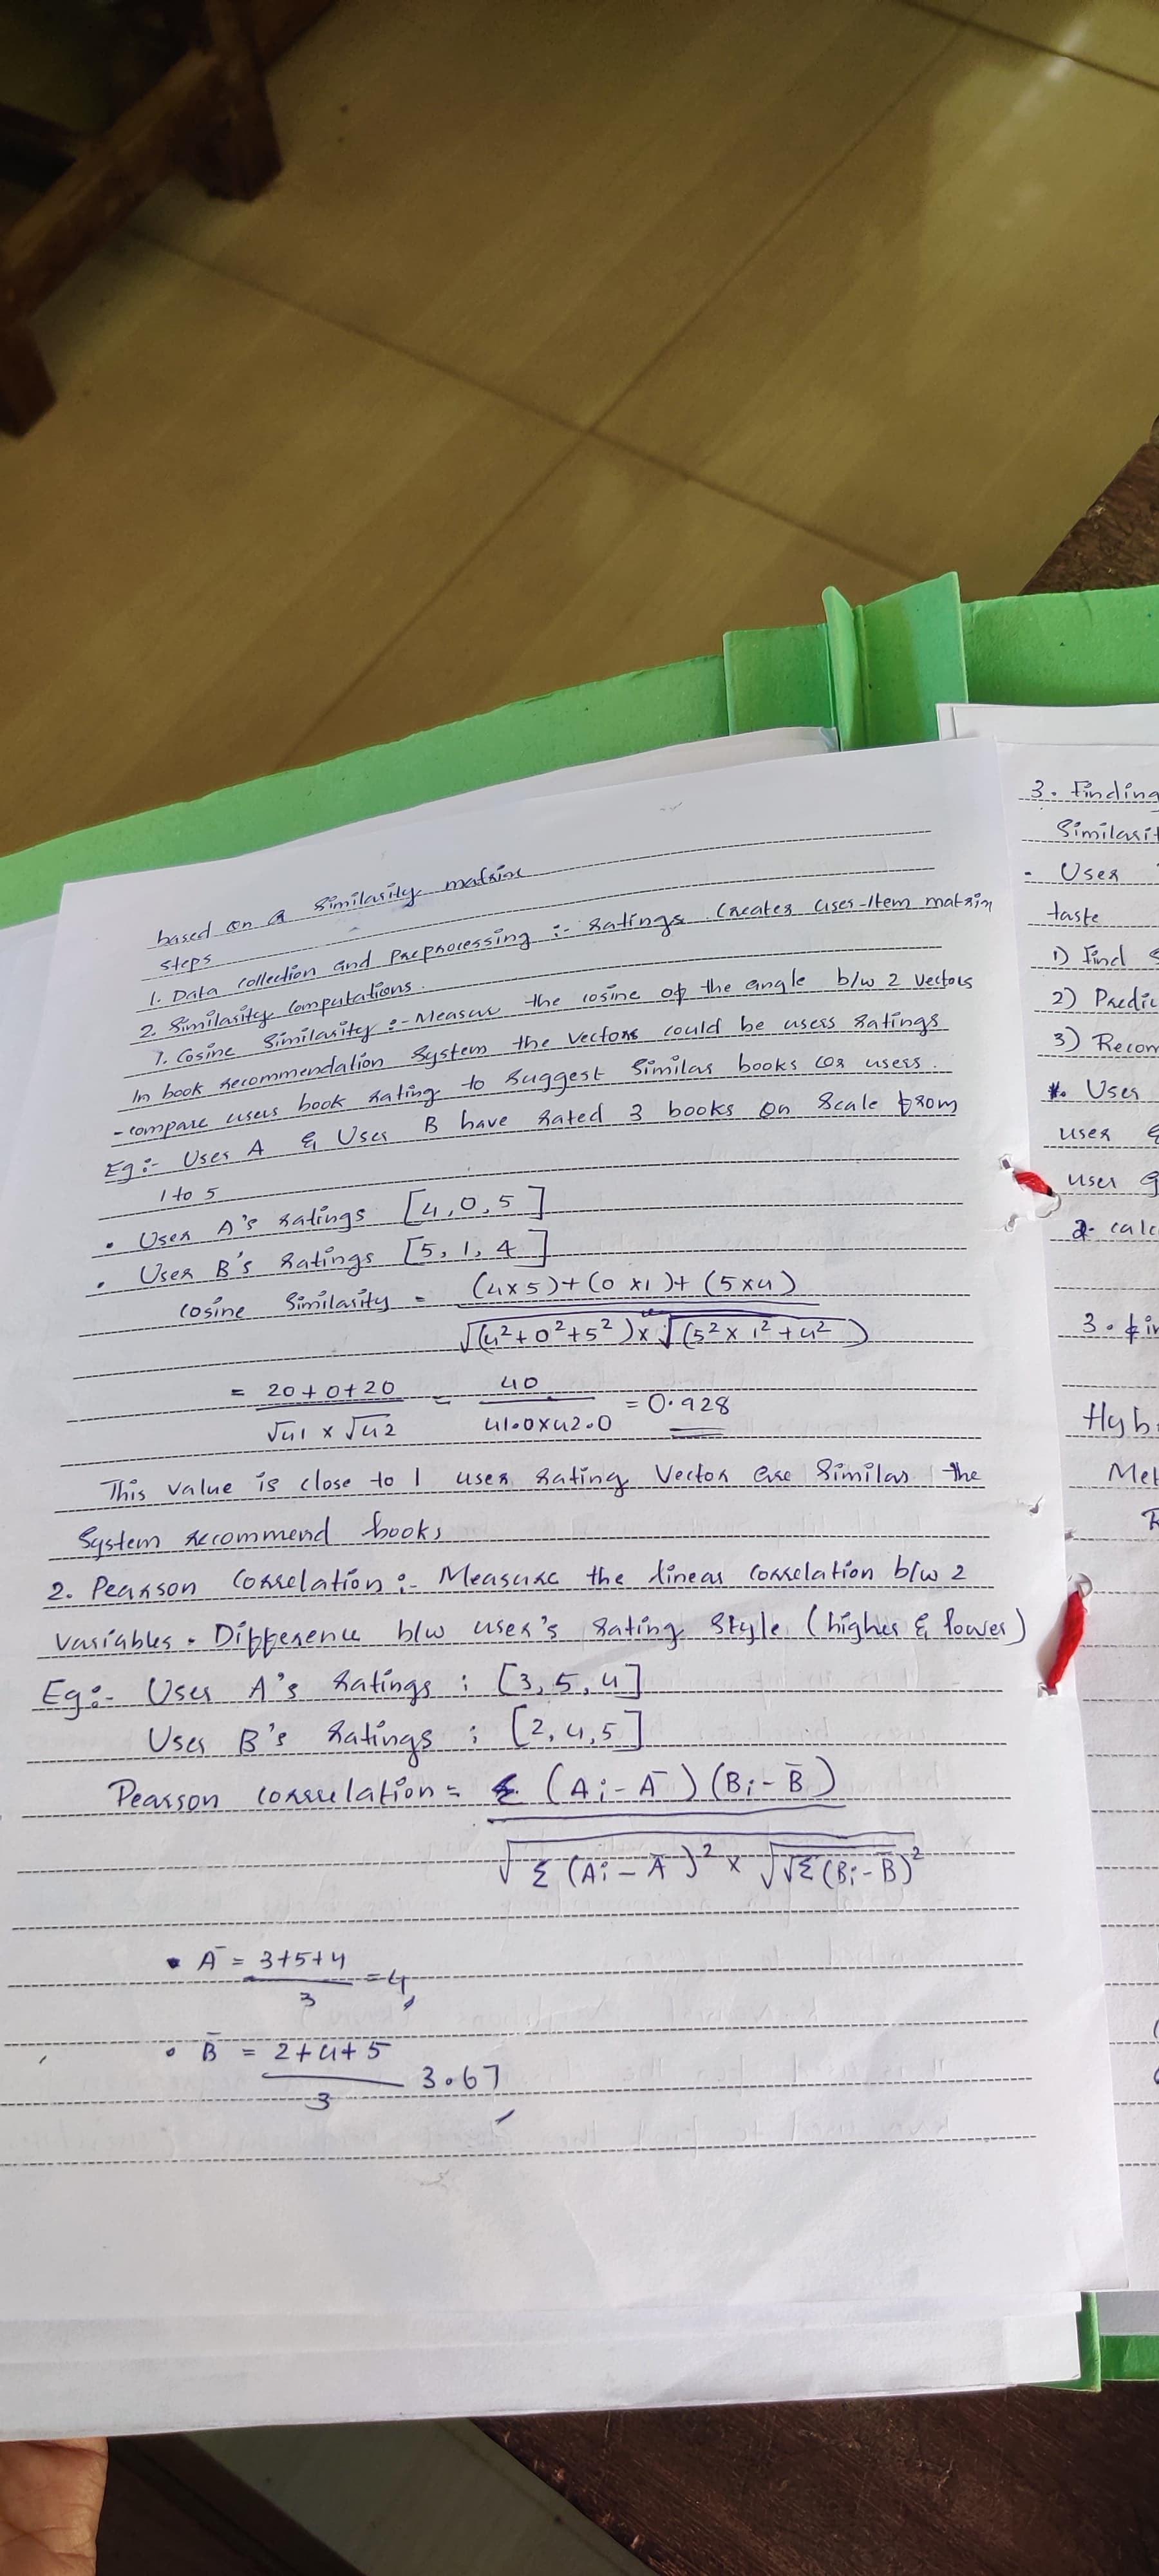 based on a similarity matrix
steps
1. Data collection and Preprocessing :- Ratings. Creates user-Item matrix
2. Similarity computations.
1. Cosine Similarity :- Measure the cosine of the angle b/w 2 vectors
In book recommendation System the vectors could be users ratings
- compare users book rating to suggest similar books for users.
Eg :- User A & User B have rated 3 books on Scale from
1 to 5
• User A's ratings [4,0,5]
• User B's ratings [5,1,4]
cosine similarity = (4x5)+(0x1)+(5x4)
√(4²+0²+5²) x √(5² x 1² + 4²)
= 20+0+20 = 40 = 0.928
√41 x √42 41.0x42.0
This value is close to 1 user rating Vector are Similar the
System recommend books
2. Pearson Correlation :- Measure the linear correlation b/w 2
variables. Difference b/w user's rating Style (higher & lower)
Eg :- User A's ratings : [3,5,4]
User B's ratings : [2,4,5]
Pearson correlation = Σ (Ai - A̅) (Bi - B̅)
√Σ (Ai - A̅)² x √√Σ(Bi - B̅)²
• A̅ = 3+5+4 = 4
3
• B̅ = 2+4+5 3.67
3
3. Finding
Similarit
- User
taste
1) Find
2) Predic
3) Recom
*. User
user
user
2. calc
3. fin
Hyb
Met